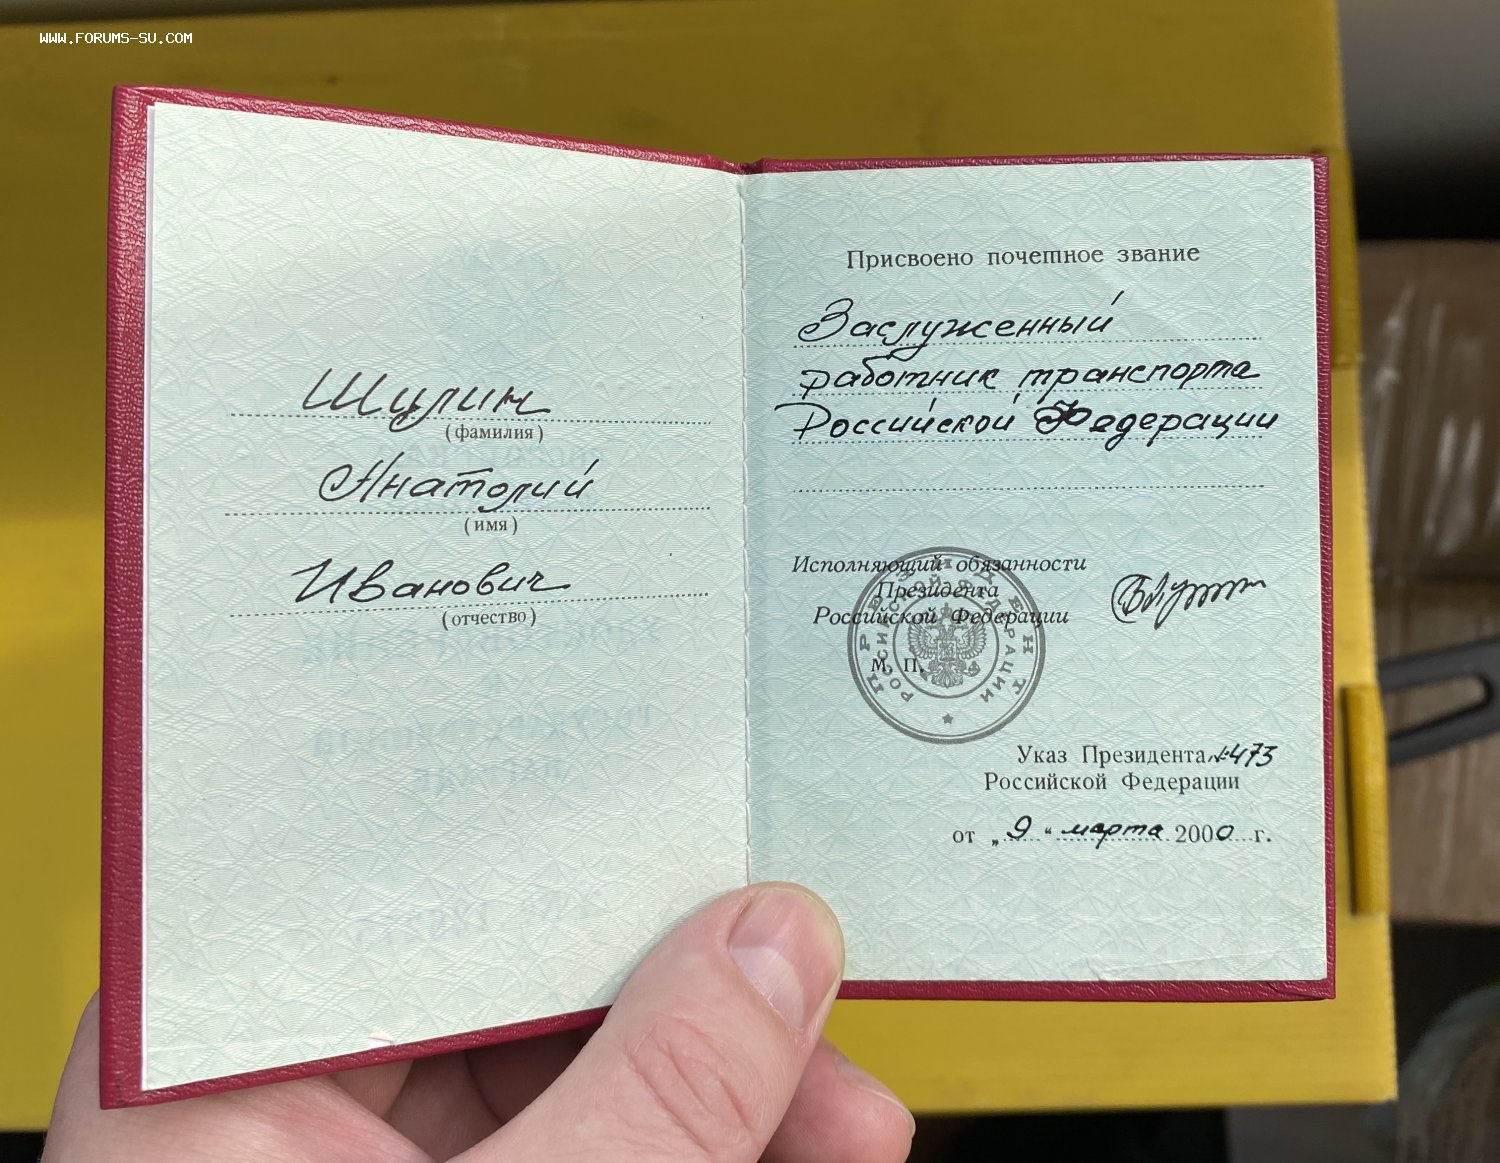 WWW.FORUMS-SU.COM
Шулин
(фамилия)
Анатолий
(имя)
Иванович
(отчество)
Присвоено почетное звание
Заслуженный
работник транспорта
Российской Федерации
Исполняющий обязанности
Президента
Российской Федерации
М. П.
ПРЕЗИДЕНТ
РОССИЙСКОЙ ФЕДЕРАЦИИ
Указ Президента №473
Российской Федерации
от „9“ марта 2000 г.